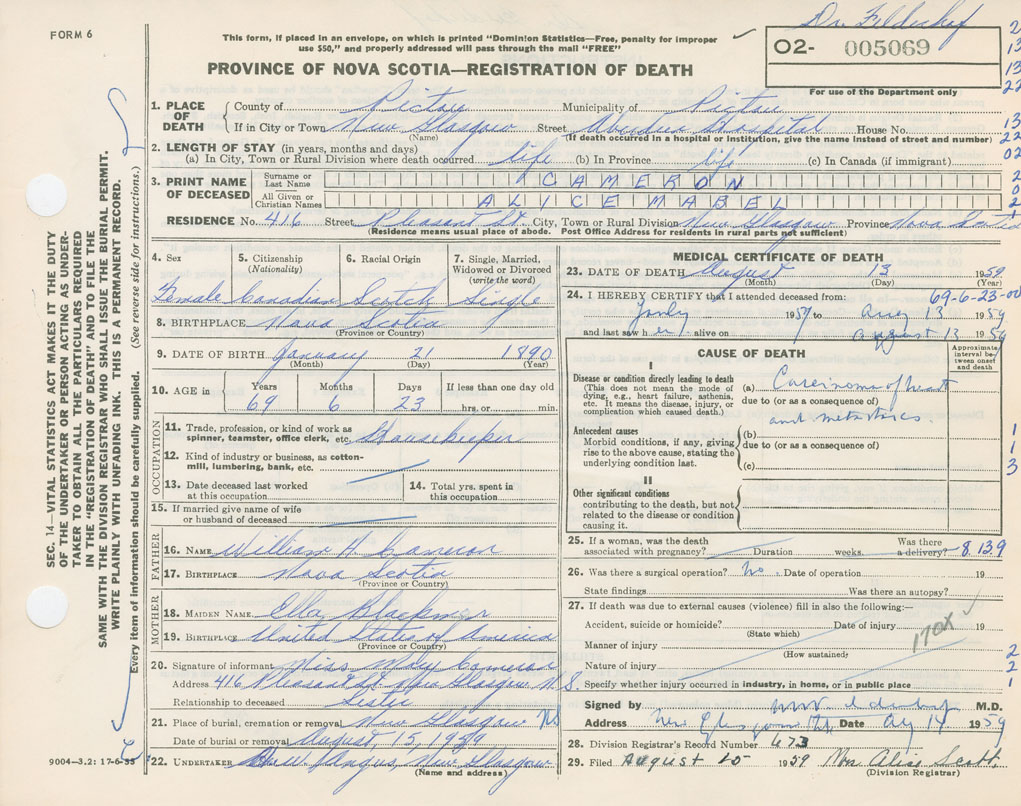 FORM 6
This form, if placed in an envelope, on which is printed "Dominion Statistics—Free, penalty for improper
use $50," and properly addressed will pass through the mail "FREE"
PROVINCE OF NOVA SCOTIA—REGISTRATION OF DEATH
O2- 005069
For use of the Department only
1. PLACE OF DEATH County of Pictou Municipality of Pictou
If in City or Town New Glasgow Street Aberdeen Hospital House No.
(Name) (If death occurred in a hospital or institution, give the name instead of street and number)
2. LENGTH OF STAY (in years, months and days)
(a) In City, Town or Rural Division where death occurred life (b) In Province life (c) In Canada (if immigrant)
3. PRINT NAME OF DECEASED Surname or Last Name CAMERON
All Given or Christian Names ALICE MABEL
RESIDENCE No. 416 Street Pleasant St. City, Town or Rural Division New Glasgow Province Nova Scotia
(Residence means usual place of abode. Post Office Address for residents in rural parts not sufficient)
4. Sex Female
5. Citizenship (Nationality) Canadian
6. Racial Origin Scotch
7. Single, Married, Widowed or Divorced (write the word) Single
8. BIRTHPLACE Nova Scotia
(Province or Country)
9. DATE OF BIRTH January 21 1890
(Month) (Day) (Year)
10. AGE in Years 69 Months 6 Days 23 If less than one day old hrs. or min.
OCCUPATION
11. Trade, profession, or kind of work as spinner, teamster, office clerk, etc. Housekeeper
12. Kind of industry or business, as cotton-mill, lumbering, bank, etc.
13. Date deceased last worked at this occupation
14. Total yrs. spent in this occupation
15. If married give name of wife or husband of deceased
FATHER
16. NAME William H. Cameron
17. BIRTHPLACE Nova Scotia
(Province or Country)
MOTHER
18. MAIDEN NAME Ella Blackmer
19. BIRTHPLACE United States of America
(Province or Country)
20. Signature of informant Miss Mary Cameron
Address 416 Pleasant St. New Glasgow N.S.
Relationship to deceased Sister
21. Place of burial, cremation or removal New Glasgow NS
Date of burial or removal August, 15, 1959
22. UNDERTAKER Angus, New Glasgow
(Name and address)
MEDICAL CERTIFICATE OF DEATH
23. DATE OF DEATH August 13 1959
(Month) (Day) (Year)
69-6-23-00
24. I HEREBY CERTIFY that I attended deceased from:
1959 to Aug 13 1959
and last saw her alive on August 13 1959
CAUSE OF DEATH
Approximate interval between onset and death
I
Disease or condition directly leading to death
(This does not mean the mode of dying, e.g., heart failure, asthenia, etc. It means the disease, injury, or complication which caused death.)
(a) Carcinoma of breast
due to (or as a consequence of)
and metastasis.
Antecedent causes
Morbid conditions, if any, giving rise to the above cause, stating the underlying condition last.
(b)
due to (or as a consequence of)
(c)
II
Other significant conditions
contributing to the death, but not related to the disease or condition causing it.
25. If a woman, was the death associated with pregnancy? Duration weeks. Was there a delivery? 8.139
26. Was there a surgical operation? No Date of operation 19
State findings Was there an autopsy?
27. If death was due to external causes (violence) fill in also the following:—
Accident, suicide or homicide? Date of injury 19
(State which)
Manner of injury 170X
(How sustained)
Nature of injury
Specify whether injury occurred in industry, in home, or in public place
Signed by M.D.
Address New Glasgow Date Aug 14 1959
28. Division Registrar's Record Number 673
29. Filed August 15 1959 Mrs Alice Scott
(Division Registrar)
SEC. 14—VITAL STATISTICS ACT MAKES IT THE DUTY
OF THE UNDERTAKER OR PERSON ACTING AS UNDER-
TAKER TO OBTAIN ALL THE PARTICULARS REQUIRED
IN THE "REGISTRATION OF DEATH" AND TO FILE THE
SAME WITH THE DIVISION REGISTRAR WHO SHALL ISSUE THE BURIAL PERMIT.
WRITE PLAINLY WITH UNFADING INK. THIS IS A PERMANENT RECORD.
Every item of information should be carefully supplied. (See reverse side for instructions.)
9004—3.2: 17-6-55